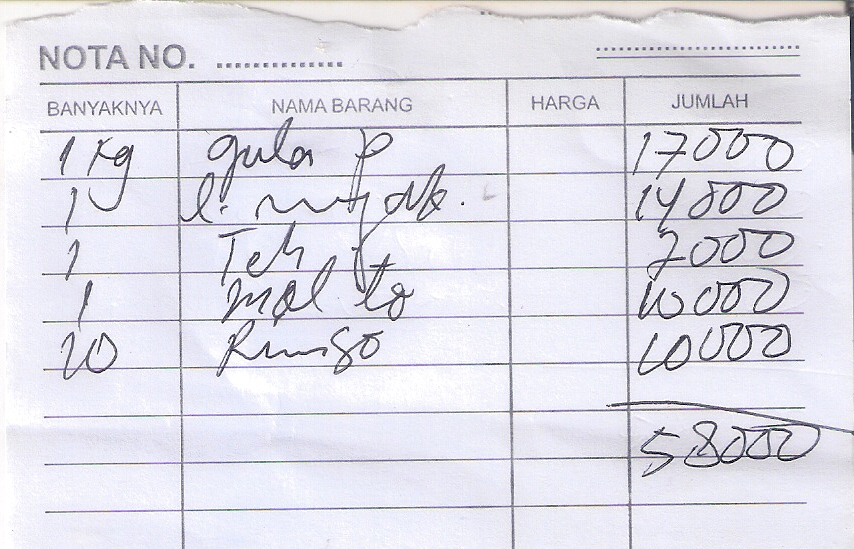 NOTA NO. ................
BANYAKNYA NAMA BARANG HARGA JUMLAH
1 kg gula P 17000
1 l. 14000
1 Teh 7000
1 10000
10 10000
58000